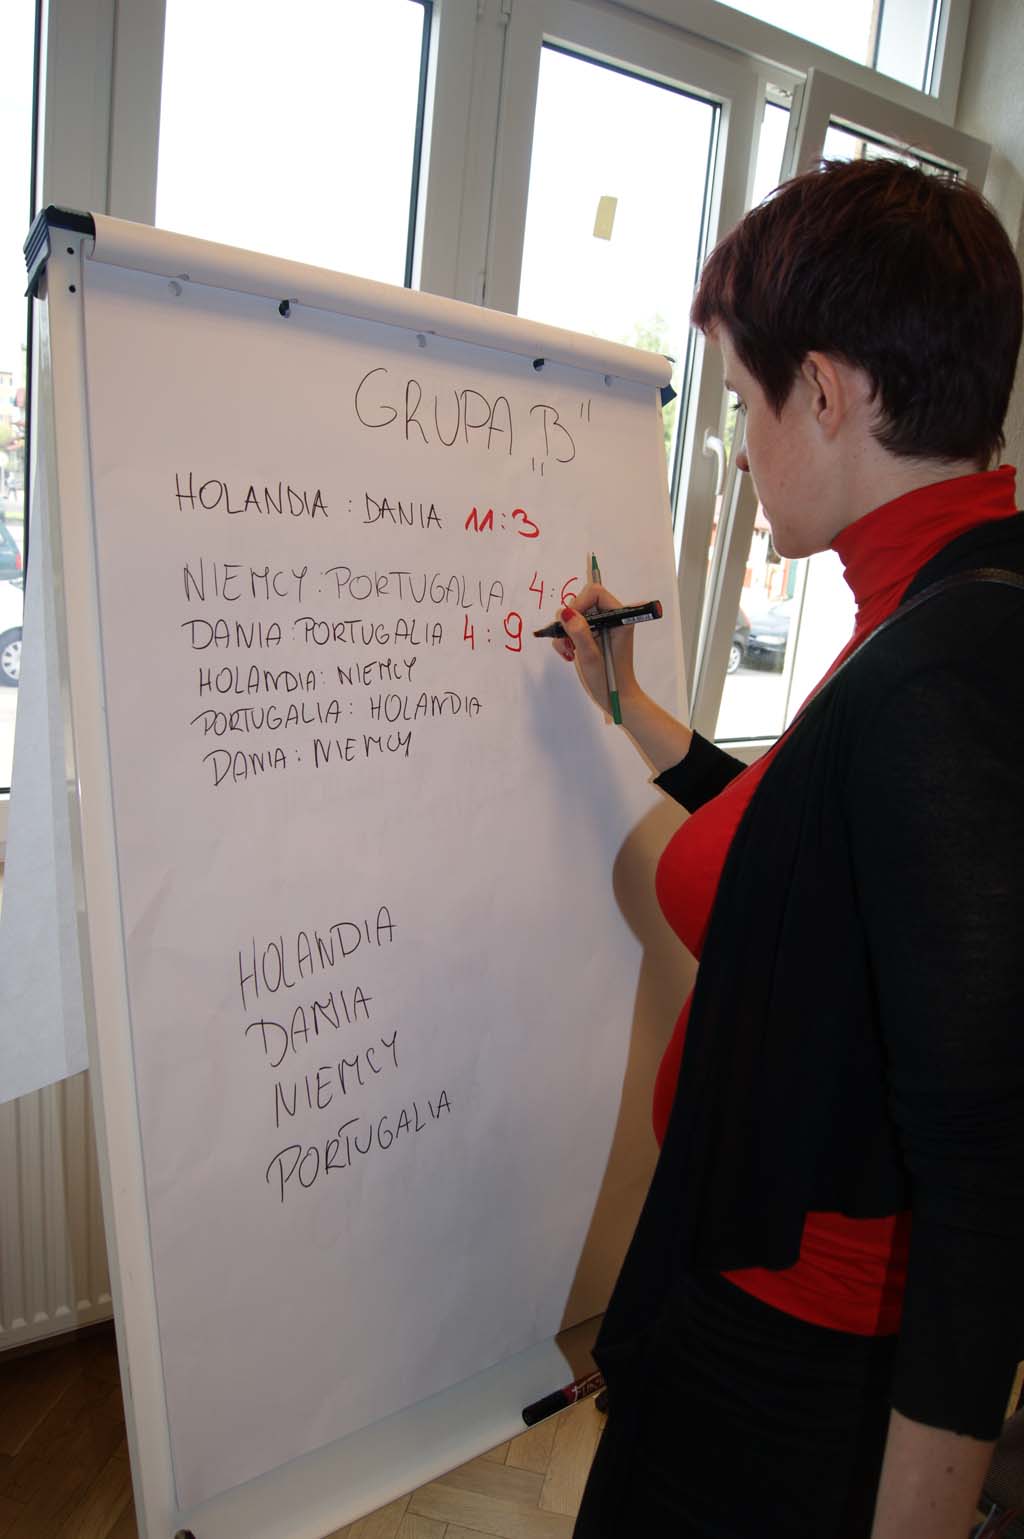 GRUPA „B"
HOLANDIA : DANIA 11:3
NIEMCY : PORTUGALIA 4:6
DANIA : PORTUGALIA 4:9
HOLANDIA : NIEMCY
PORTUGALIA : HOLANDIA
DANIA : NIEMCY
HOLANDIA
DANIA
NIEMCY
PORTUGALIA